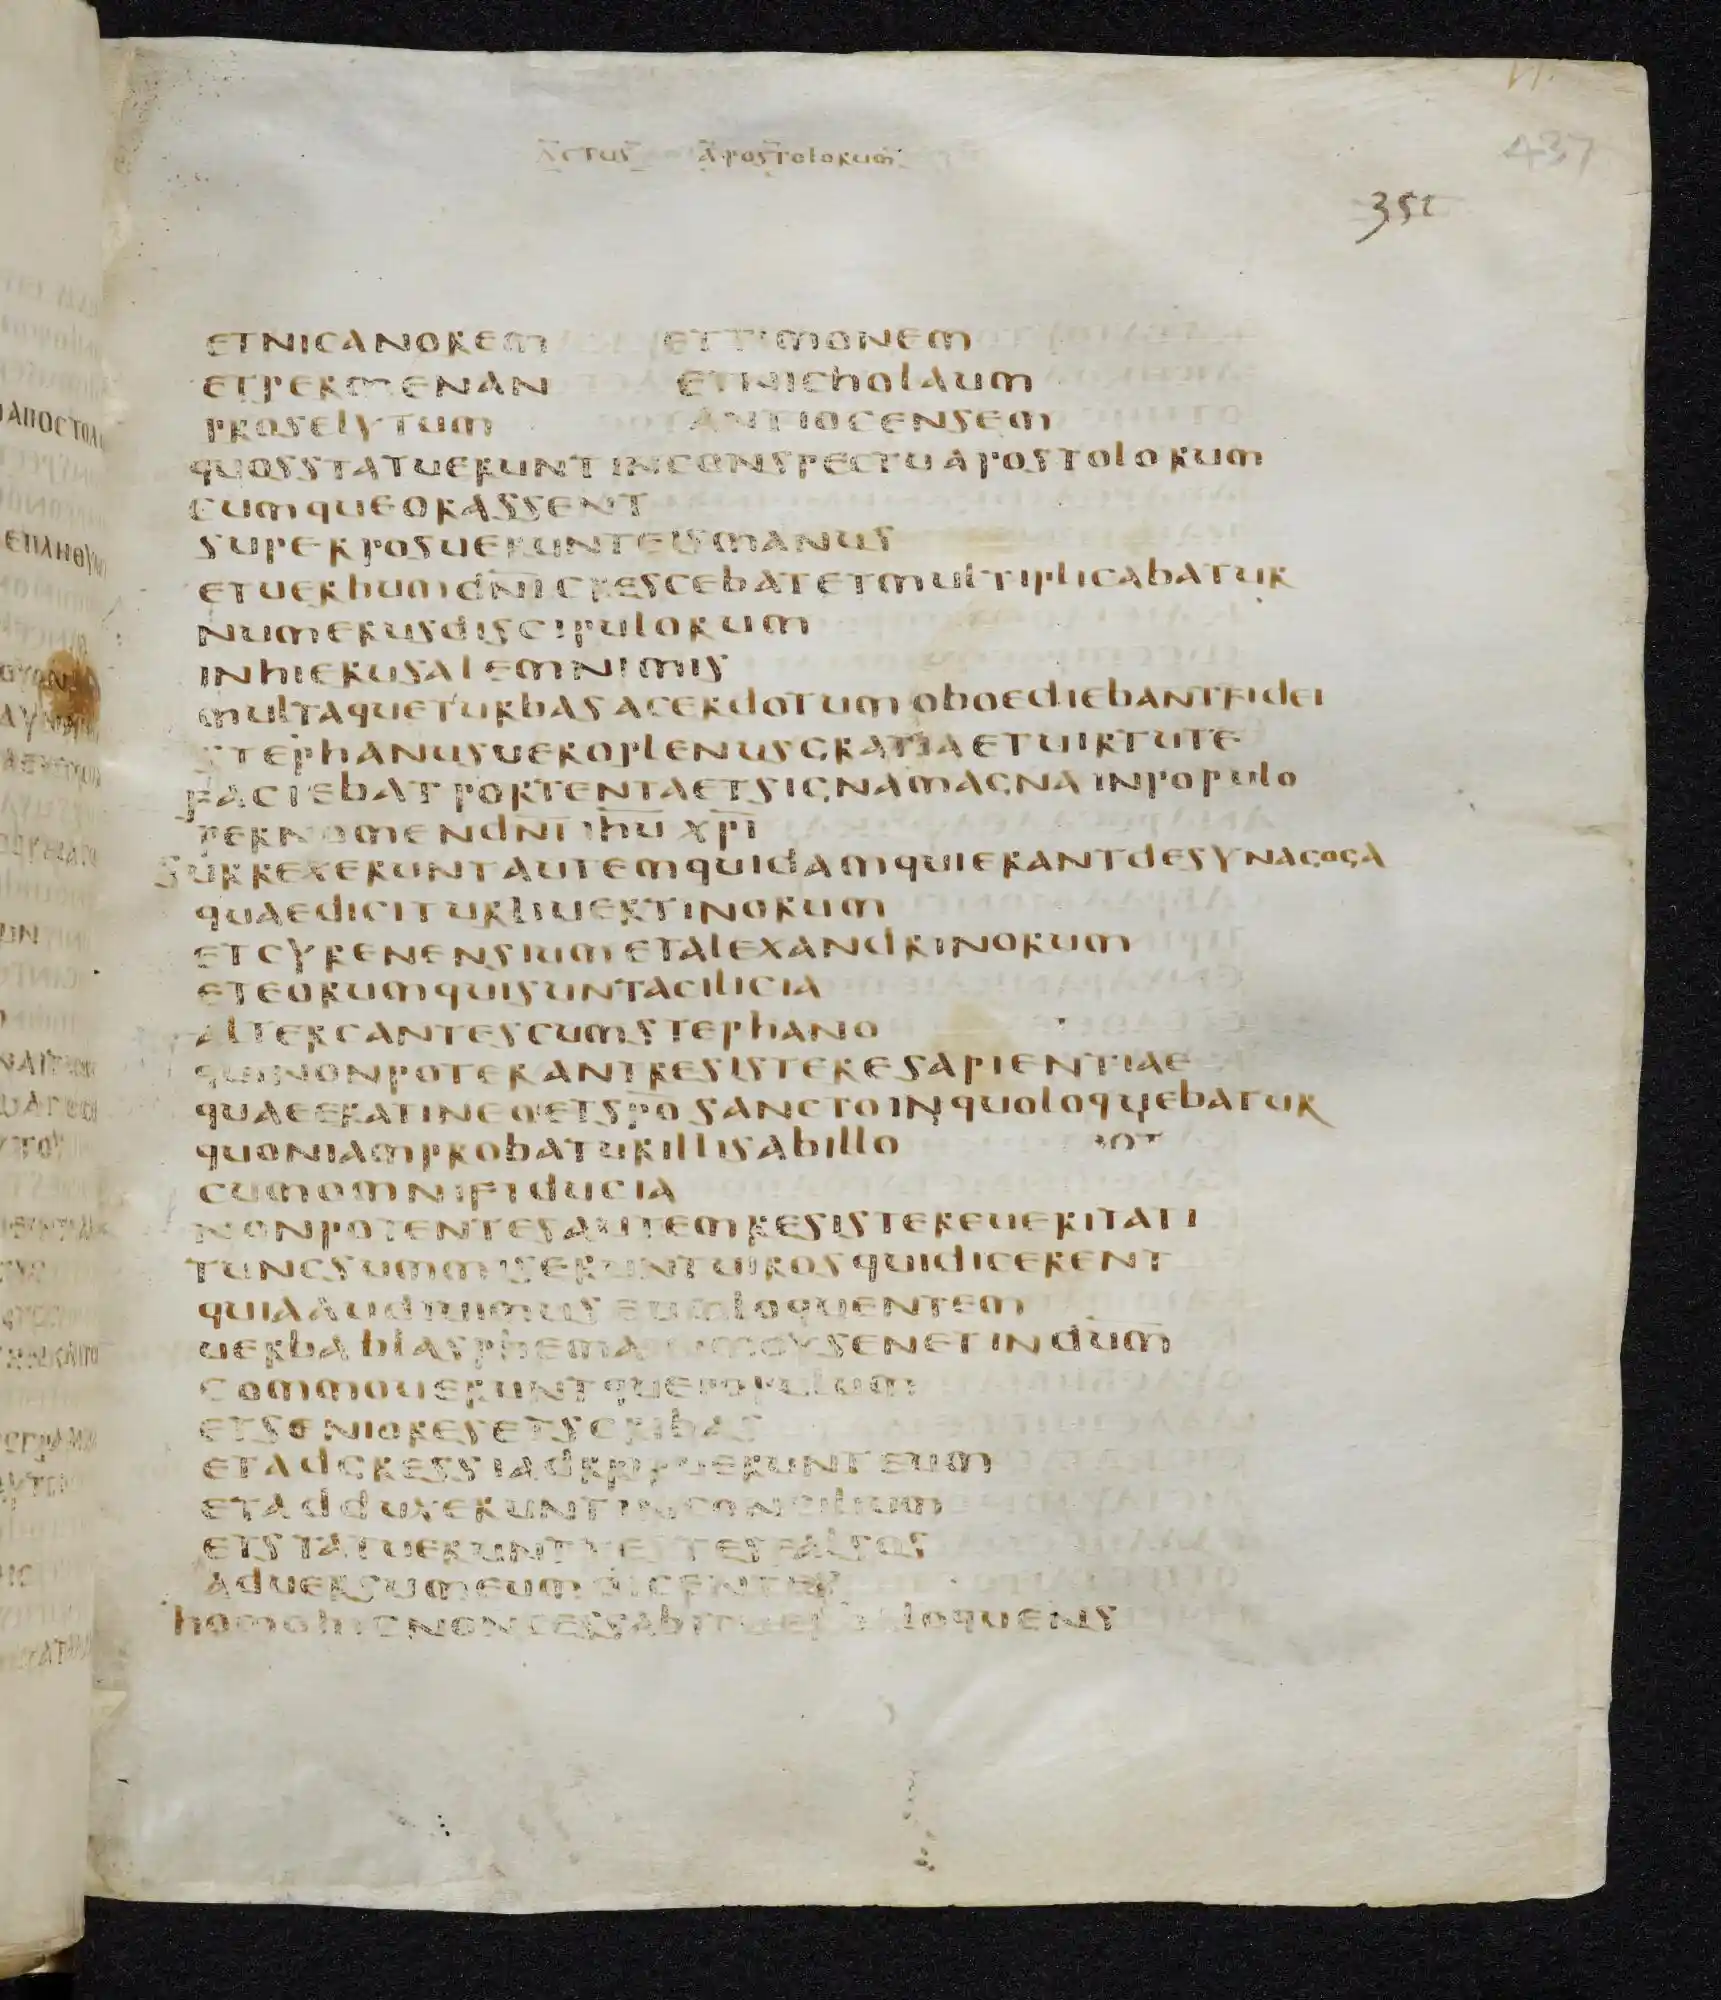 ACTUS APOSTOLORUM
437
ETNICANOREM ETTIMONEM
ETPERMENAN ETNICHOLAUM
PROSELYTUM ANTIOCENSEM
QUOSSTATUERUNTINCONSPECTUAPOSTOLORUM
CUMQUEORASSENT
SUPERPOSUERUNTEISMANUS
ETUERBUMDN̅I̅CRESCEBATETMULTIPLICABATUR
NUMERUSDISCIPULORUM
INHIERUSALEMNIMIS
MULTAQUETURBASACERDOTUMOBOEDIEBANTFIDEI
STEPHANUSUEROPLENUSGRATIAETUIRTUTE
FACIEBATPORTENTAETSIGNAMAGNAINPOPULO
PERNOMENDN̅I̅ IH̅U̅ XP̅I̅
SURREXERUNTAUTEMQUIDAMQUIERANTDESYNAGOGA
QUAEDICITURLIUERTINORUM
ETCYRENENSIUMETALEXANDRINORUM
ETEORUMQUISUNTACILICIA
ALTERCANTESCUMSTEPHANO
QUINONPOTERANTRESISTERESAPIENTIAE
QUAEERATINEOETSP̅O̅SANCTOINQUOLOQUEBATUR
QUONIAMPROBATURILLISABILLO
CUMOMNIFIDUCIA
NONPOTENTESAUTEMRESISTEREUERITATI
TUNCSUMMISERUNTUIROSQUIDICERENT
QUIAAUDIUIMUSEUMLOQUENTEM
UERBABLASPHEMAINMOYSENETIND̅U̅M̅
COMMOUERUNTQUEPOPULUM
ETSENIORESETSCRIBAS
ETADGRESSIADRIPUERUNTEUM
ETADDUXERUNTINCONCILIUM
ETSTATUERUNTTESTESFALSOS
ADUERSUMEUMDICENTES
HOMOHICNONCESSABIT LOQUENS